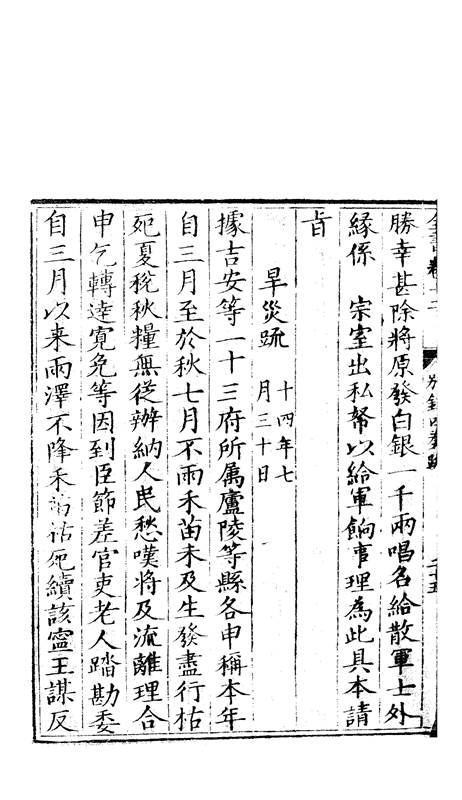 勝幸甚除將原發白銀一千兩唱名給散軍士外
緣係　宗室出私帑以給軍餉事理為此具本請
旨
旱災疏　十四年七月三十日
據吉安等一十三府所屬廬陵等縣各申稱本年
自三月至於秋七月不雨禾苗未及生發盡行枯
死夏稅秋糧無從辦納人民愁嘆將及流離理合
申乞轉達寬免等因到臣節差官吏老人踏勘委
自三月以来雨澤不降禾苗枯死續該寧王謀反